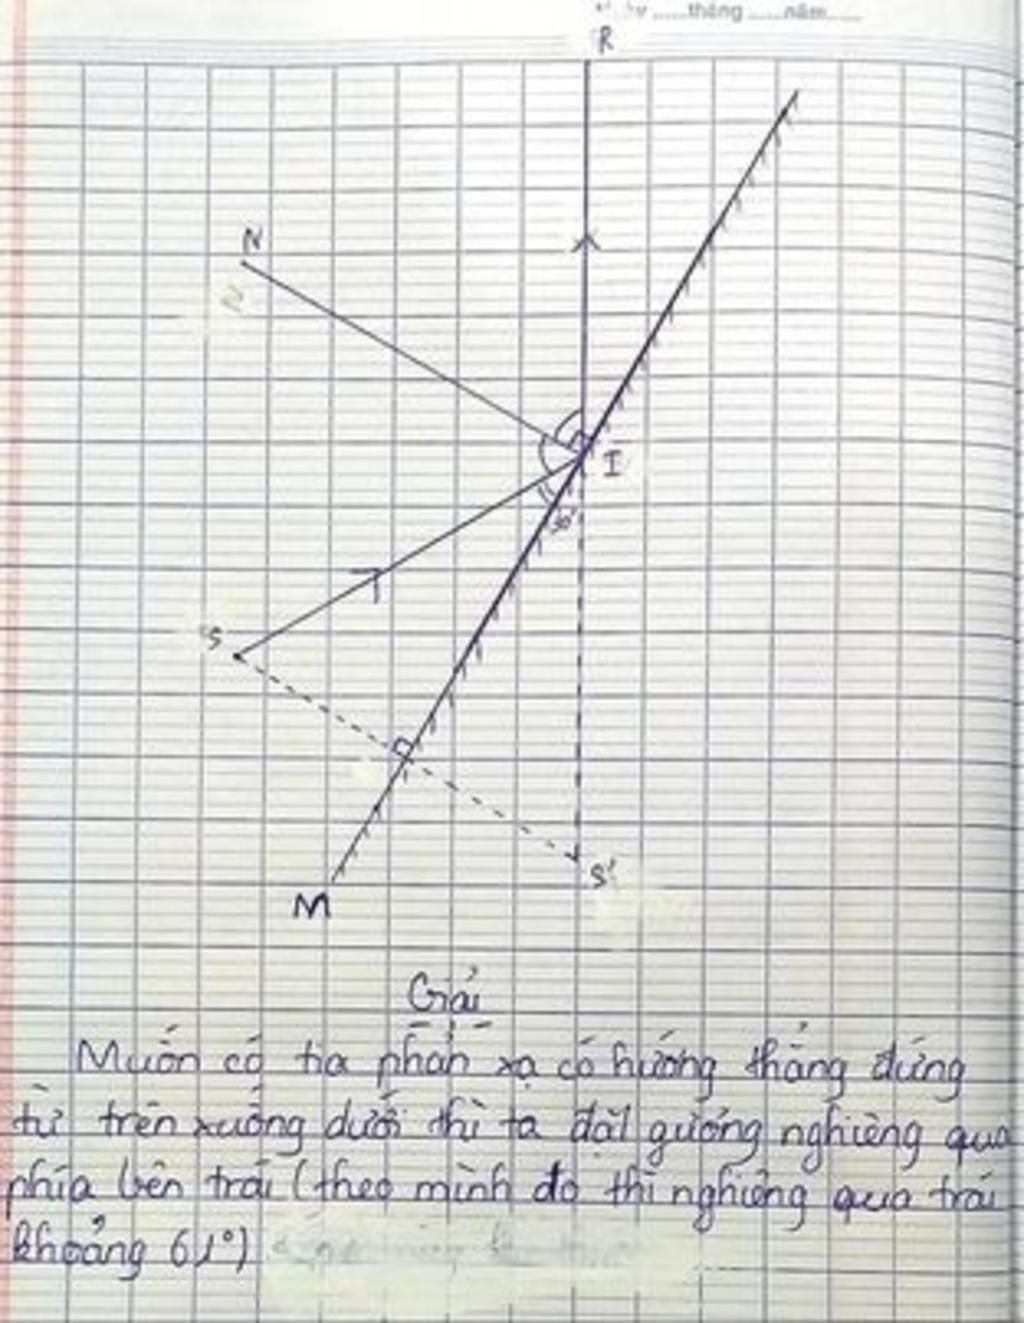 .....tháng .....năm.....
R
N
N
I
30°
S
S'
M
Giải
Muốn có tia phản xạ có hướng thẳng đứng
từ trên xuống dưới thì ta đặt gương nghiêng qua
phía bên trái (theo mình đo thì nghiêng qua trái
khoảng 61°)